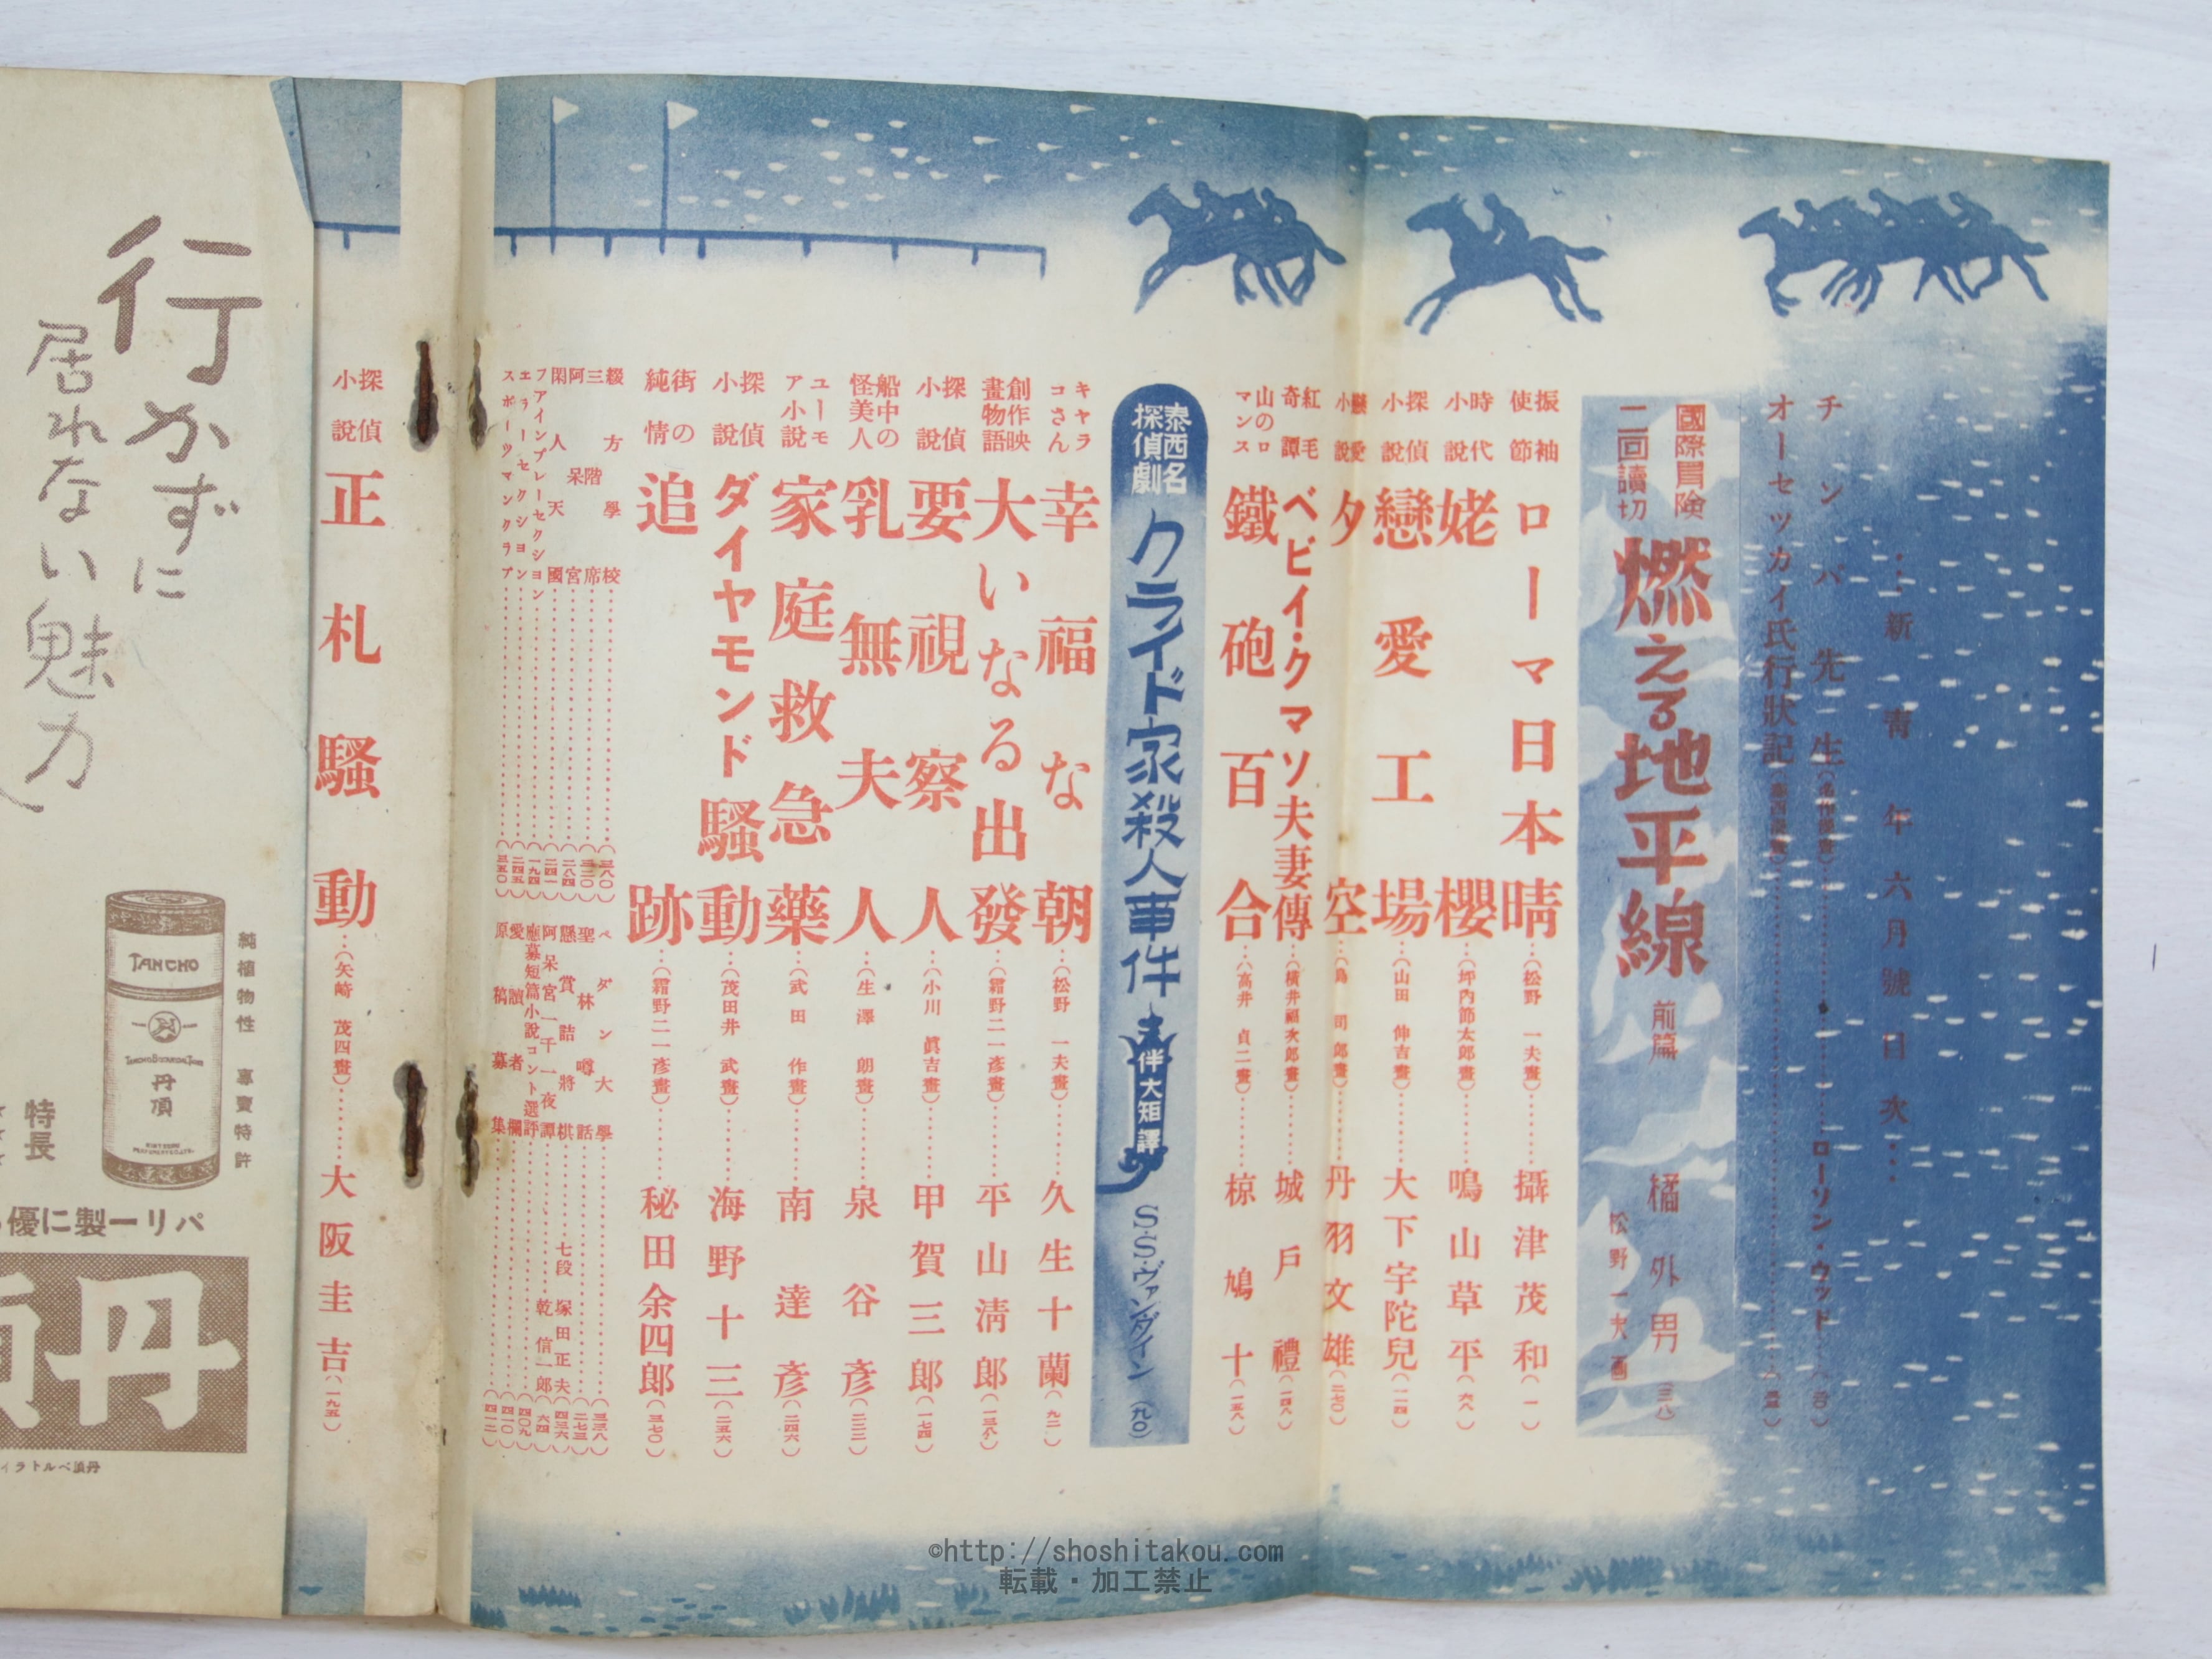 …新青年六月號目次…
チンパ先生(名作漫畫)……ローソン・ウッド
オーセツカイ氏行狀記
國際冒険
二回讀切
燃える地平線 前篇 橘外男(三八)
松野一夫画
振袖使節 ローマ日本晴…(松野一夫畫)……攝津茂和(一一)
時代小說 姥櫻…(坪內節太郎畫)……鳴山草平(六八)
探偵小說 戀愛工場…(山田伸吉畫)……大下宇陀兒(一二四)
戀愛小說 夕空…(島司郎畫)……丹羽文雄(二七〇)
紅毛奇譚 ベビイ・クマソ夫妻傳…(橫井福次郎畫)……城戶禮(一四八)
山のロマンス 鐵砲百合…(高井貞二畫)……椋鳩十(一五八)
泰西名探偵劇 クライド家殺人事件 伴大矩譯 S・S・ヴァンダイン(九〇)
キャラコさん 幸福な朝…(松野一夫畫)……久生十蘭(九二)
創作映畫物語 大いなる出發…(霜野二一彥畫)……平山淸郎(一三八)
探偵小說 要視察人…(小川眞吉畫)……甲賀三郎(一七四)
船中の怪美人 乳無夫人…(生澤朗畫)……泉谷彥(二三二)
ユーモア小說 家庭救急藥…(武田作畫)……南達彥(二四六)
探偵小說 ダイヤモンド騷動…(茂田井武畫)……海野十三(二五六)
街の純情 追跡…(霜野二一彥畫)……秘田余四郎(三七〇)
綴方學校……(三八〇)
三階席……(三二〇)
阿呆宮……(二八四)
閑人天國……(二四一)
ファインプレーセクション……(一九四)
エラーセクション……(二四五)
スポーツマンクラブ……(三五〇)
ペダン大學……(三三八)
聖林噂話……(二七三)
懸賞詰將棋……七段 塚田正夫(四三六)
阿呆宮一千一夜譚……乾信一郎(六四)
應募短篇小說コント選評……(四〇九)
愛讀者欄……(四一〇)
原稿募集……(四一二)
探偵小說 正札騷動…(矢崎茂四畫)……大阪圭吉(一九五)
行かずに
居れない魅力
純植物性 專賣特許
TANCHO
丹頂
特長
パリー製に優
丹頂
©http://shoshitakou.com
転載・加工禁止